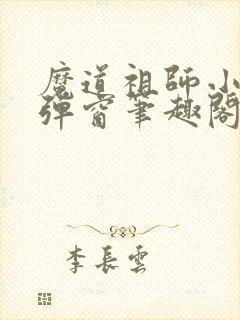 魔道祖師小
彈窗筆趣閣
李長雲